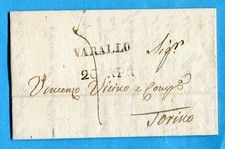 VARALLO
Sigr
20 APR
Vincenzo Vicino e Compa
Torino